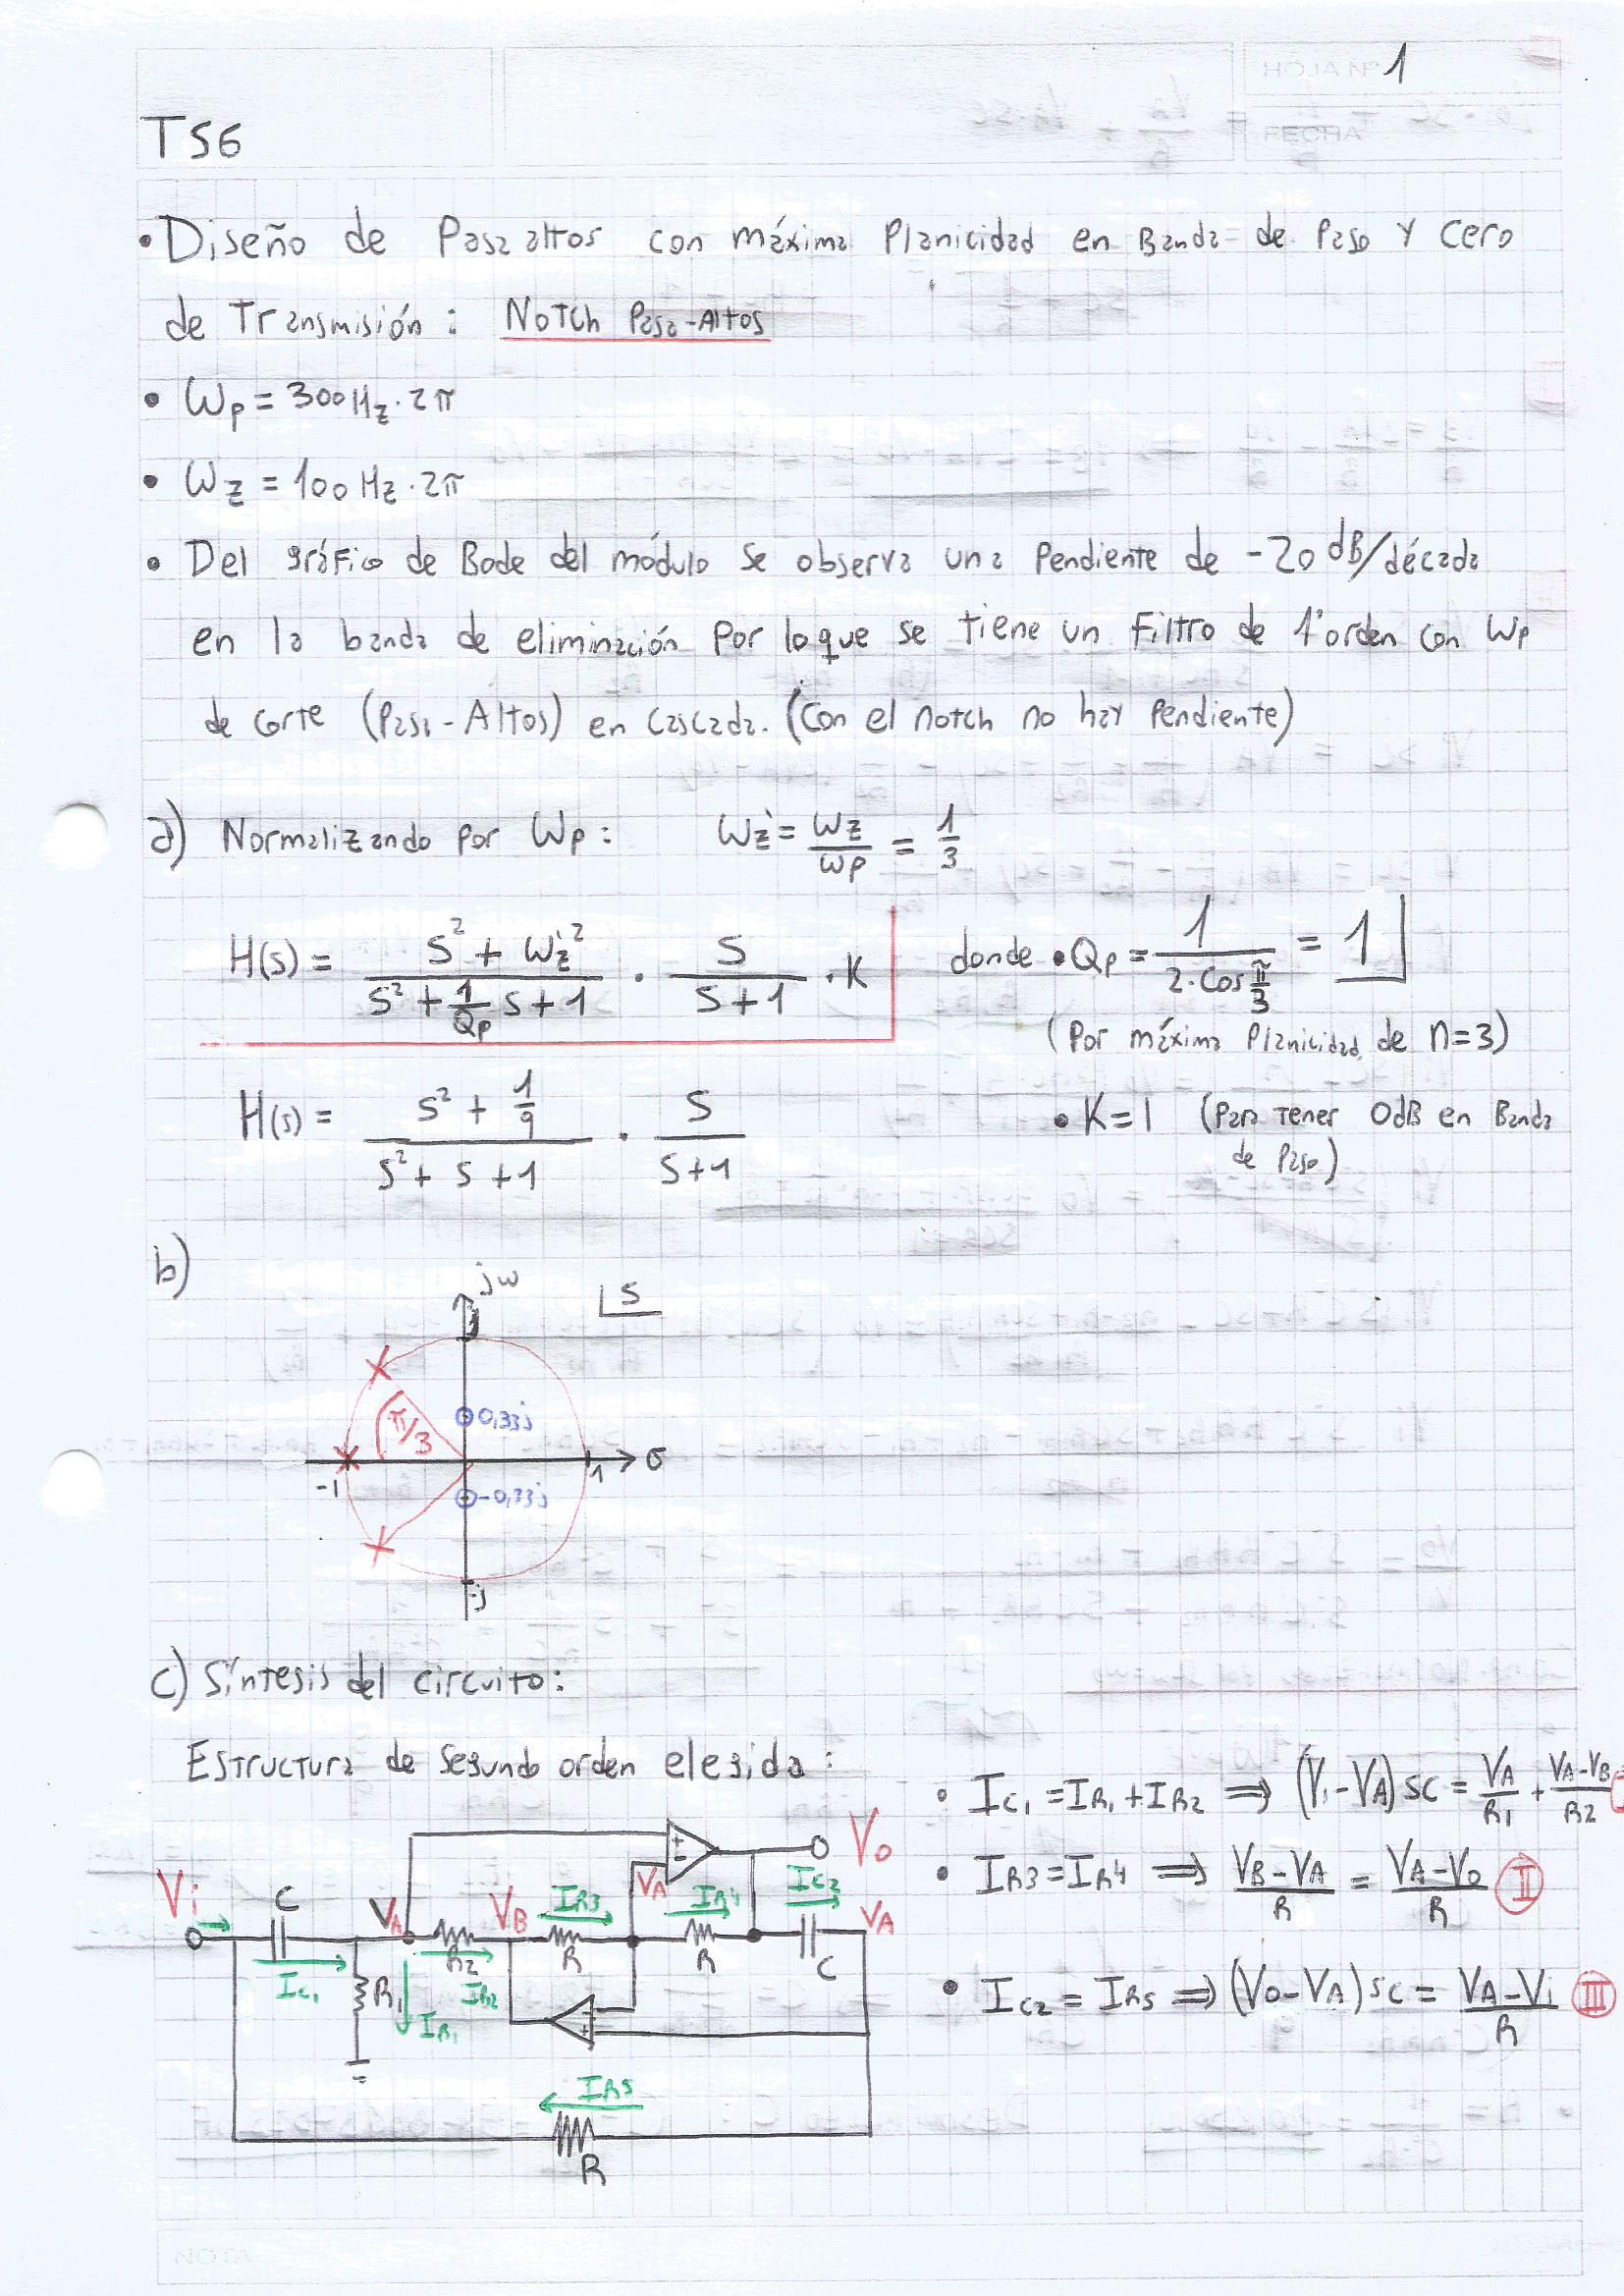 HOJA Nº 1
FECHA
TS6
• Diseño de Pasaaltos con máxima Planicidad en Banda de Paso y cero
de Transmisión: Notch Pasa-Altos
• Wp = 300Hz·2π
• Wz = 100Hz·2π
• Del gráfico de Bode del módulo se observa una Pendiente de -20 dB/década
en la banda de eliminación Por lo que se tiene un Filtro de 1°orden con Wp
de corte (Pasa-Altos) en cascada. (Con el notch no hay Pendiente)
a) Normalizando por Wp: Wz' = Wz/Wp = 1/3
H(s) = (S² + Wz'²)/(S² + (1/Qp) S + 1) · S/(S+1) · K donde • Qp = 1/(2·Cos π/3) = 1
(Por máxima Planicidad de n=3)
H(s) = (S² + 1/9)/(S² + S + 1) · S/(S+1) • K=1 (Para tener 0dB en Banda
de Paso)
b)
jω
S
π/3
0,33j
-1
1
σ
-0,33j
-j
c) Síntesis del circuito:
Estructura de Segundo orden elegida:
• IC1 = IR1 + IR2 ⟹ (Vi-VA) SC = VA/R1 + (VA-VB)/R2
• IR3 = IR4 ⟹ (VB-VA)/R = (VA-V0)/R II
• IC2 = IR5 ⟹ (V0-VA) SC = (VA-Vi)/R III
Vo
Vi
C
VA
VB
IR3
VA
IR4
IC2
VA
R2
R
R
C
IC1
R1
IR1
IR2
IR5
R
NOTA